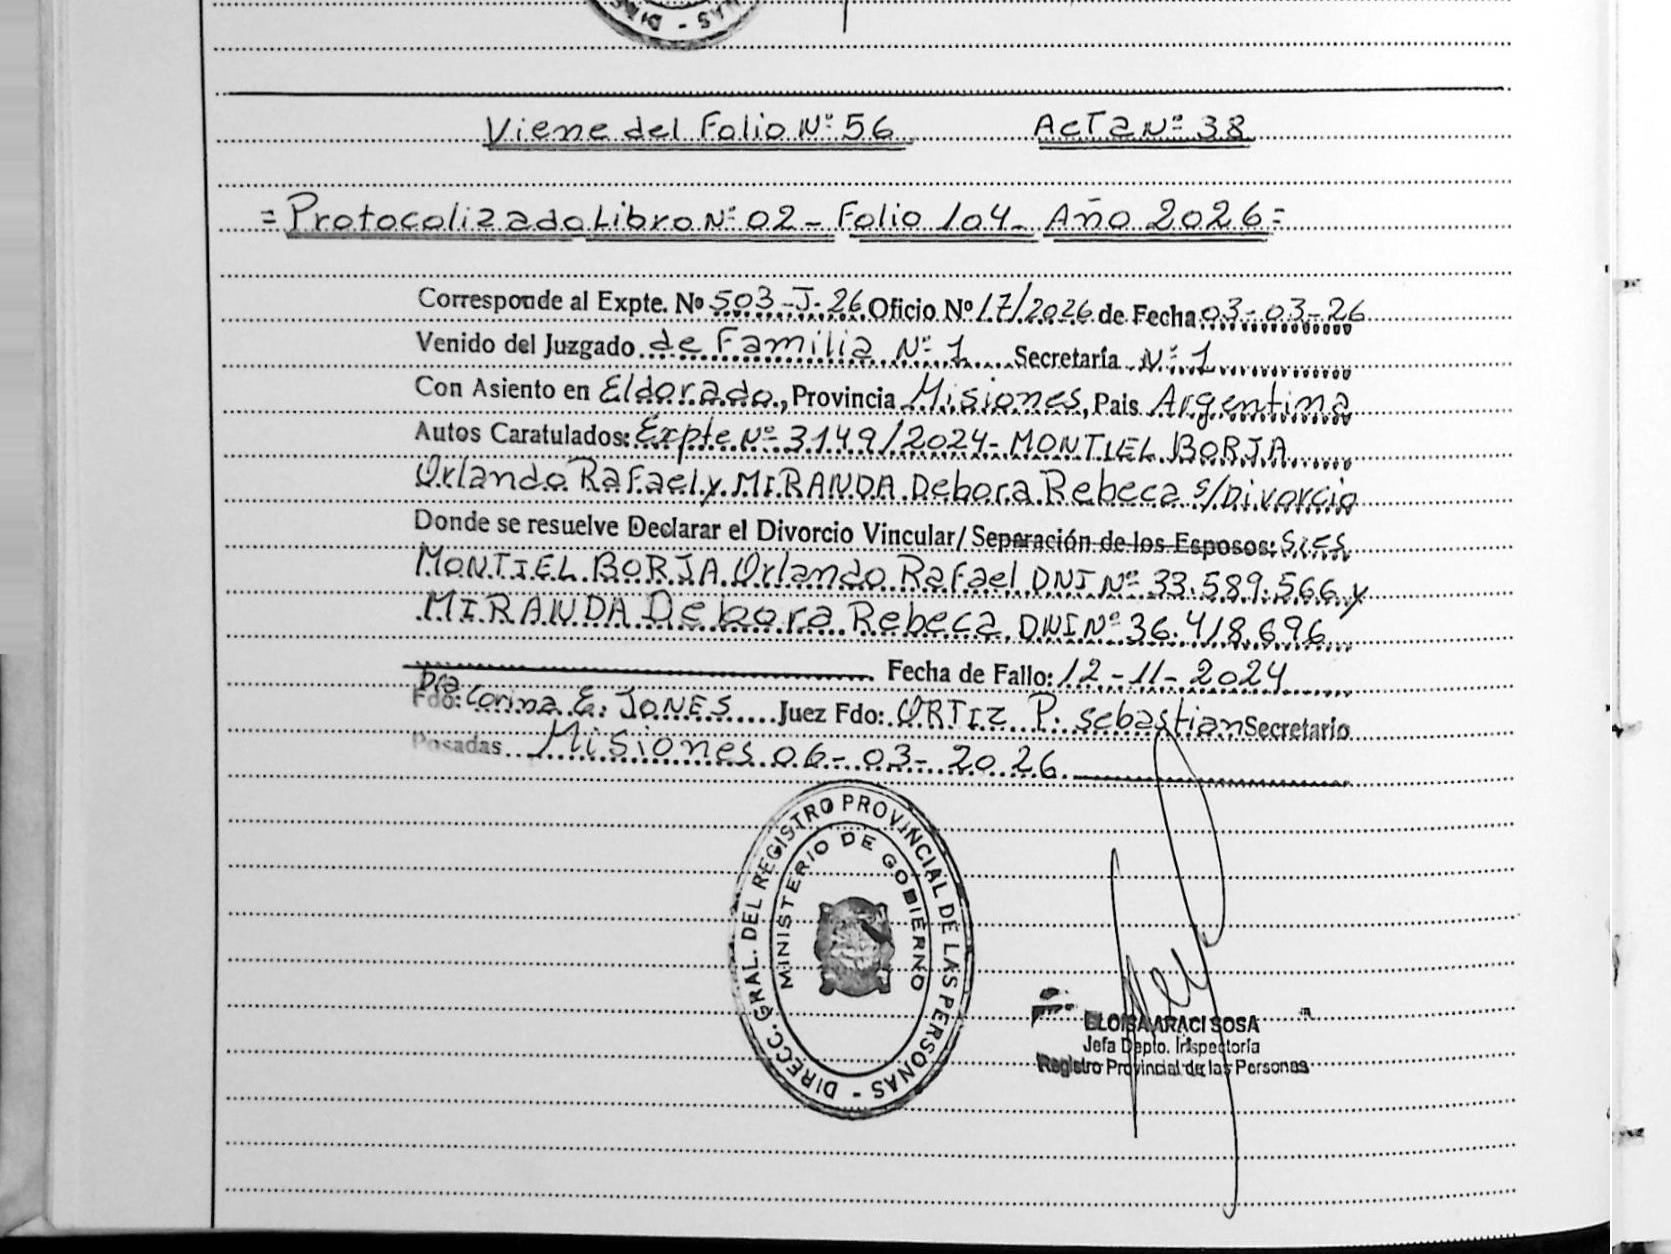 Viene del Folio Nº 56 Acta Nº 38
= Protocolizado Libro Nº 02 - Folio 104 - Año 2026 =
Corresponde al Expte. Nº 503-J-26 Oficio Nº 17/2026 de Fecha 03-03-26
Venido del Juzgado de Familia Nº 1 Secretaría Nº 1
Con Asiento en Eldorado, Provincia Misiones, Pais Argentina
Autos Caratulados: Expte Nº 3149/2024 - MONTIEL BORJA
Orlando Rafael y MIRANDA Debora Rebeca s/Divorcio
Donde se resuelve Declarar el Divorcio Vincular/ Separación de los Esposos: Sres
MONTIEL BORJA Orlando Rafael DNI Nº 33.589.566 y
MIRANDA Debora Rebeca DNI Nº 36.418.696
Fecha de Fallo: 12-11-2024
Fdo: Dra Corina E. JONES Juez Fdo: ORTIZ P. Sebastian Secretario
Posadas Misiones 06-03-2026
DIRECC. GRAL. DEL REGISTRO PROVINCIAL DE LAS PERSONAS -
MINISTERIO DE GOBIERNO
ELOISA ARACI SOSA
Jefa Depto. Inspectoría
Registro Provincial de las Personas